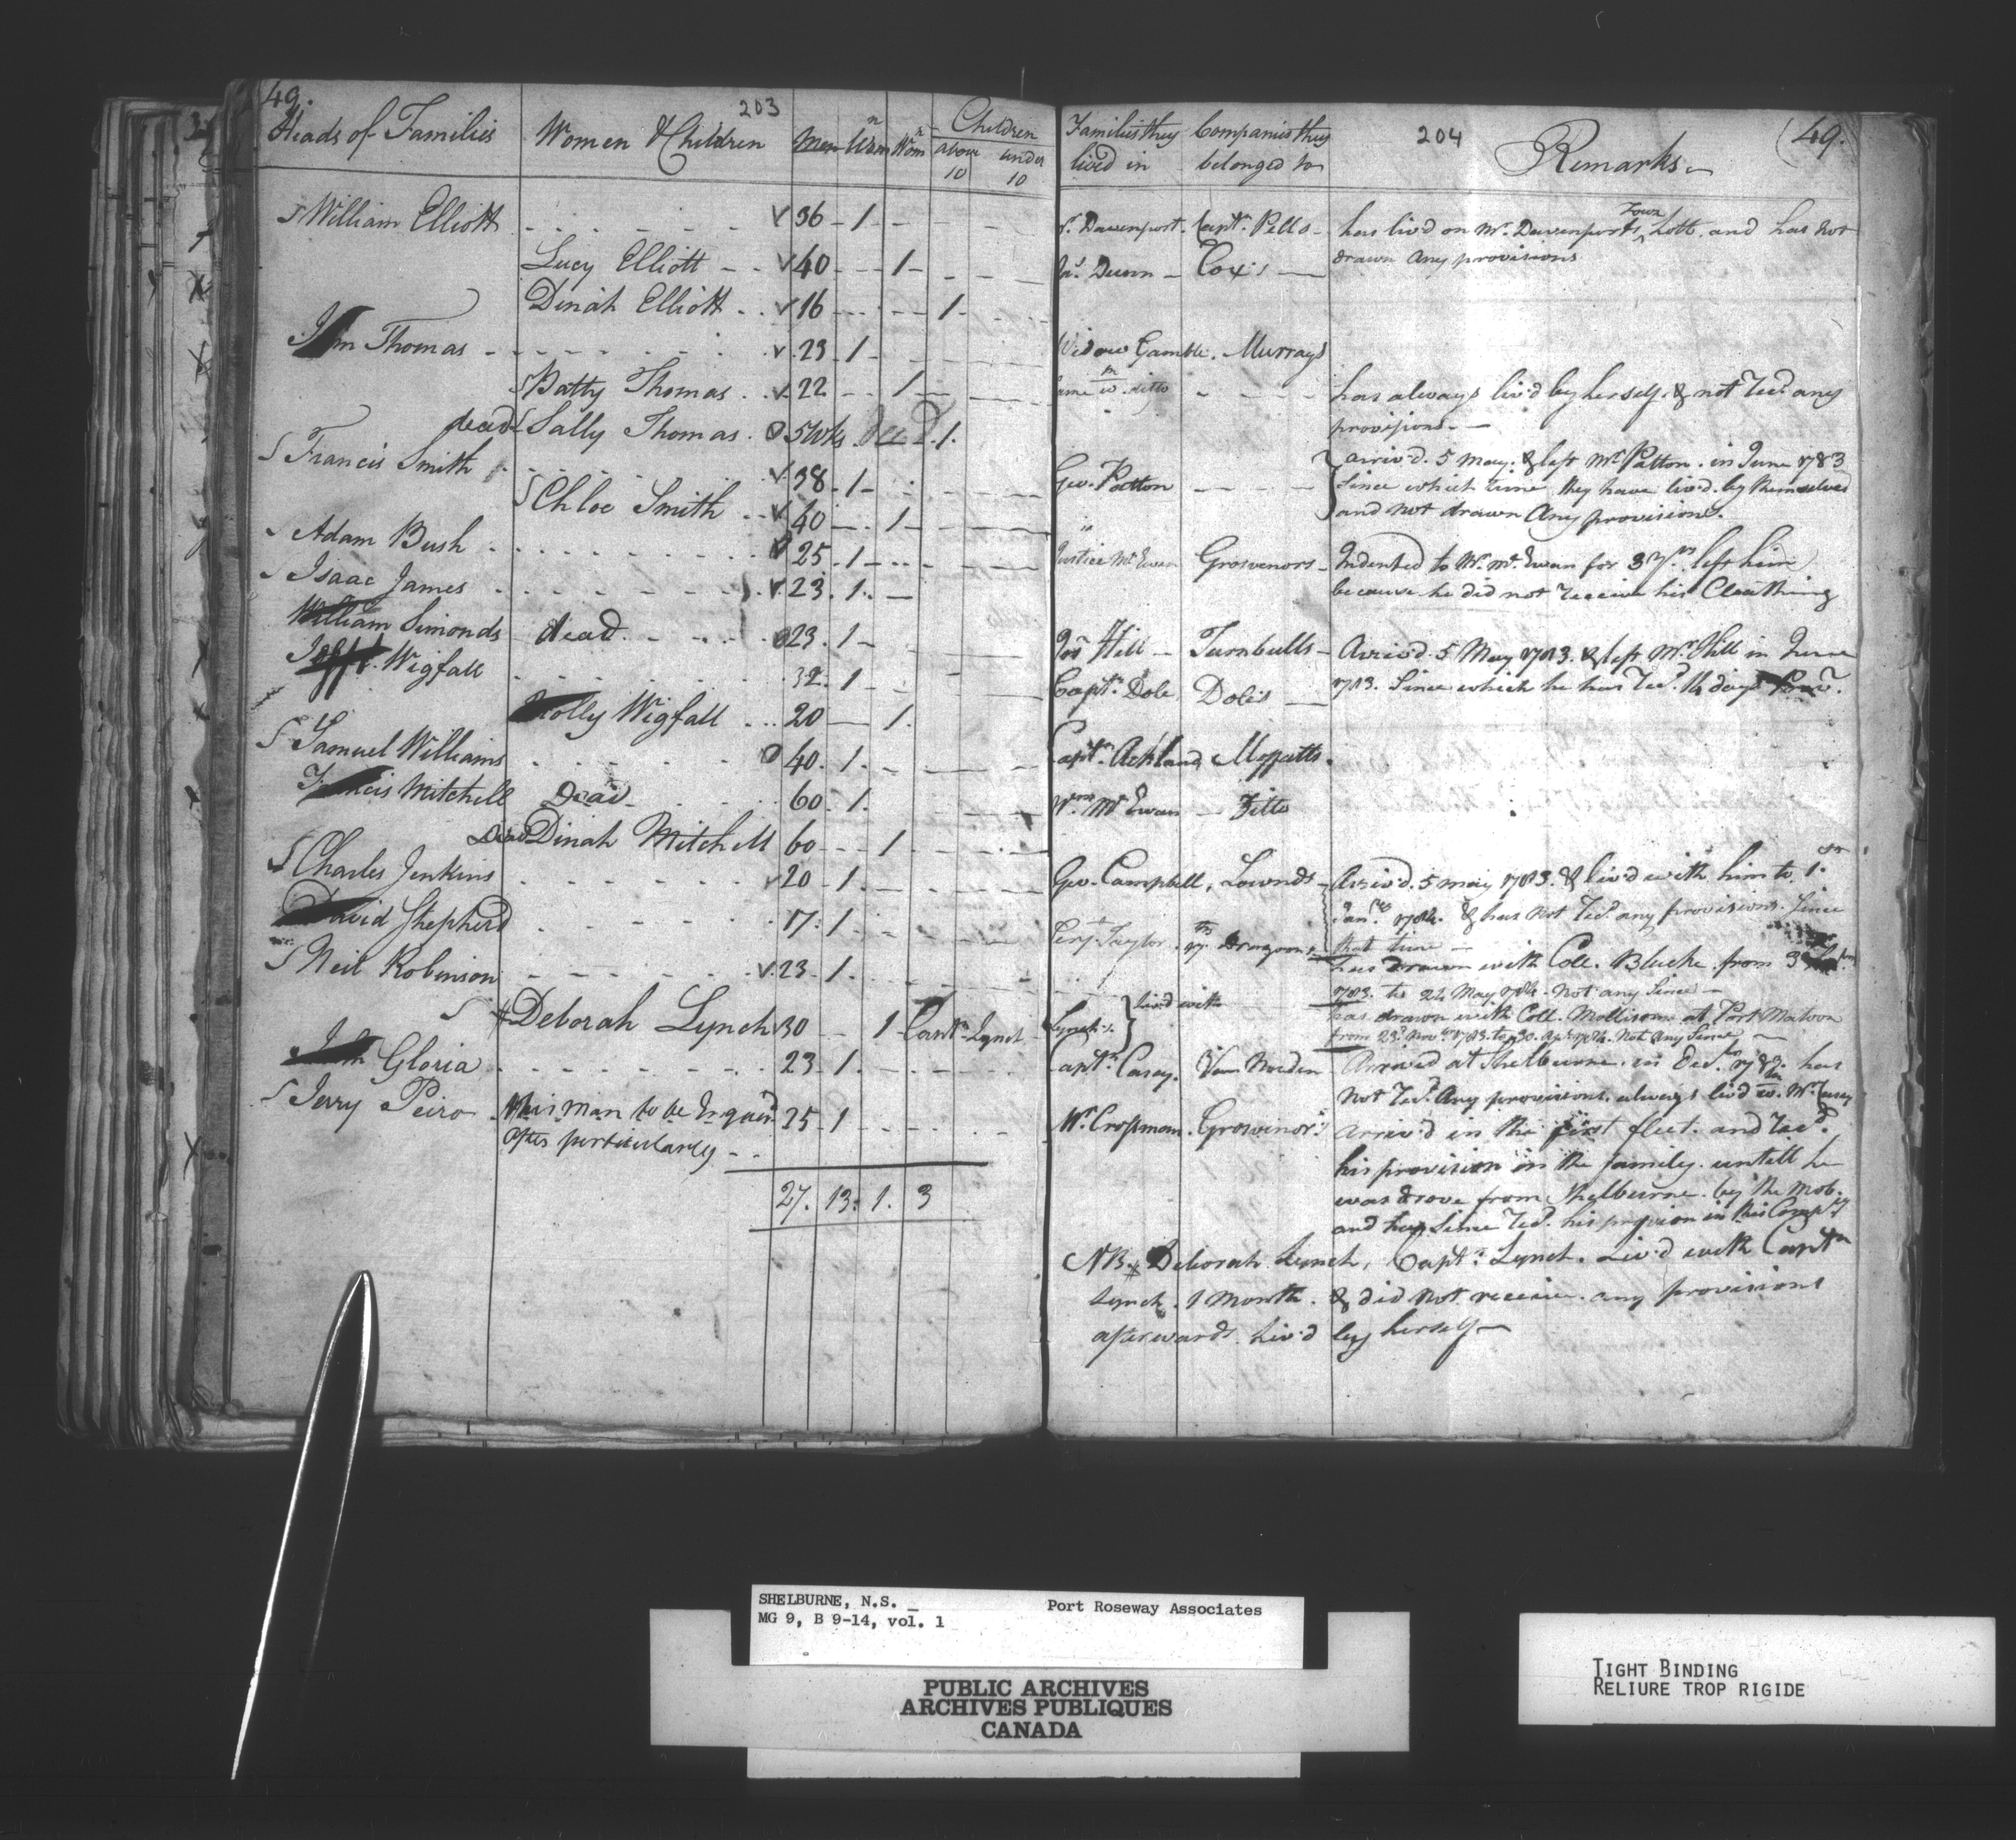 49.
203
Heads of Families Women & Children Men Wom Children
above 10 under 10
S William Elliott v 36 - 1 -
Lucy Elliott - - v 40 - - 1 -
Dinah Elliott . . v 16 - - - 1 -
Thomas - v. 23 - 1 -
S Patty Thomas . v. 22 - - 1 -
dead Sally Thomas . 5 Wks . dead . 1 .
S Francis Smith v. 38 - 1 -
S Chloe Smith . . v 40 - . 1 -
S Adam Bush . 25 . 1 -
S Isaac James v. 23 . 1 . -
William Simonds dead - - - 23 . 1 -
Wigfall 32 . 1 -
Wigfall . . . 20 — 1 .
S Samuel Williams 40 . 1 . -
Francis Mitchell Dead 60 . 1 .
Dead Dinah Mitchell 60 - - 1
S Charles Jenkins v 20 - 1 .
David Shepherd 17 . 1 .
S Neil Robinson v. 23 - 1 .
S # Deborah Lynch 30 - - 1 Captn. Lynch
Gloria 23 . 1 .
S Jerry Peiro this man to be Inquird 25 - 1
after perticularly - -
27 . 13 . 1 . 3
Families they lived in Companies they belonged to
204
Remarks
(49.
Davenport . Captn. Pells - has liv'd on Mr. Davenports Town Lott . and has not
Dunn - Cox's — drawn any provisions
Widow Gamble . Murrays
ditto - - - - has always liv'd by herself & not Recd. any
provisions . -
arriv'd . 5 May . & left Mr. Patton . in June 1783
Geo. Patton - - - - Since which time they have liv'd by themselves
and not drawn Any provisions .
Justice McEwen Grosvenors - Indented to Mr. McEwan for 3 Yrs. left him
because he did not Receive his Cloathing
Hill - Turnbulls - Arriv'd . 5 May 1783 . & left Mr. Hill in June
Captn. Dole . Doles — 1783 . Since which he has Recd. 14 days Prov.
Captn. Ackland Moffatts .
Wm. McEwan - Ditto
Geo. Campbell , Lownds - Arriv'd . 5 may 1783 . & liv'd with him to 1st
Jany 1784 . & has not Recd. any provisions . Since
Taylor . 17th Dragoons that time -
has drawn with Coll. Blucke from 3
1783 . to 24 May 1784 . Not any Since -
Lynch's } liv'd with has drawn with Coll. Mollisons at Port Matoon
from 23d. Novr. 1783 . to 30 . Apr. 1784 . Not Any Since
Captn. Casey . Van Norden Arrived at Shelburne . in Decr. 1783 . has
Not Recd. Any provisions . always liv'd w. Mr. Casey
Mr. Crossman . Grosvinor's arriv'd in the first fleet . and Recd.
his provision in the family . untill he
was drove from Shelburne . by the mob .
and has Since Recd. his provision in this Compy
NB. # Deborah Lynch , Captn: Lynch . Liv'd with Captn
Lynch . 1 Month . & did not receive . any provisions
afterwards . Liv'd by herself —
SHELBURNE, N.S. _ Port Roseway Associates
MG 9, B 9-14, vol. 1
PUBLIC ARCHIVES
ARCHIVES PUBLIQUES
CANADA
TIGHT BINDING
RELIURE TROP RIGIDE